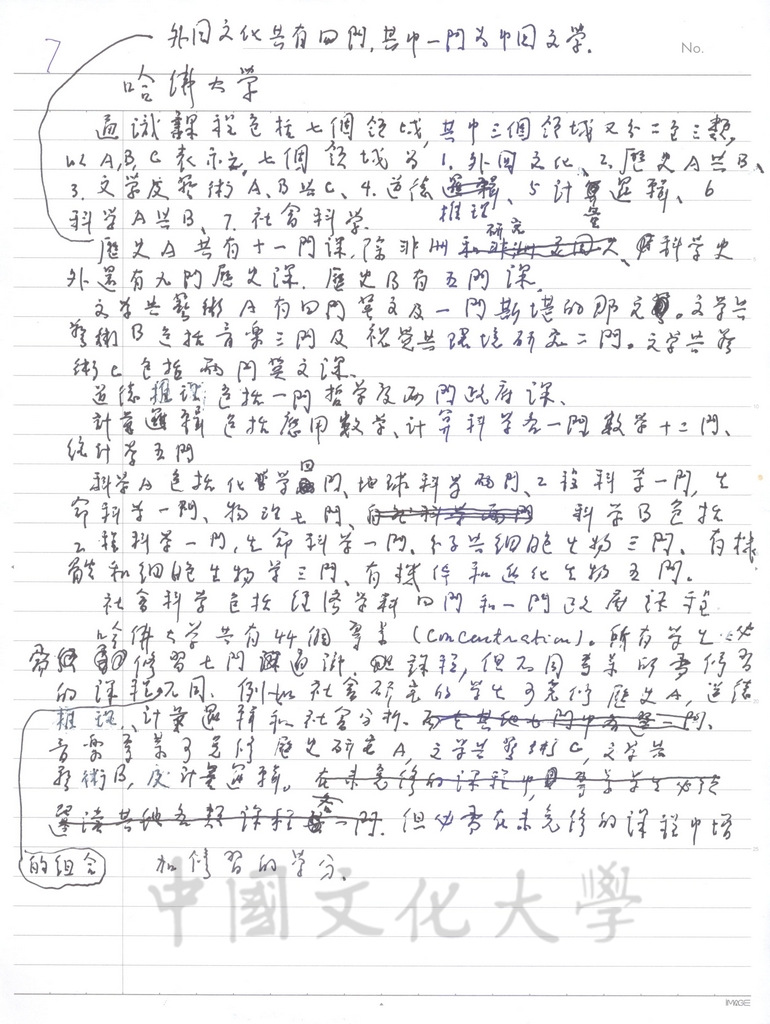 7
外国文化共有四門,其中一門为中国文学.
No.
哈佛大学
通識課程包括七個領域,其中三個領域又分二至三類,
以A,B,C表示之.七個領域为1.外国文化、2.歷史A共B、
3.文学及藝術A、B共C、4.道德邏輯、5計算邏輯、6
推理 量
科学A共B、7.社会科学.
研究
歷史A共有十一門課,除非洲和非洲 科学史
外還有九門歷史課.歷史B有五門課.
文学共藝術A有四門英文及一門斯堪的那文。文学共
藝術B包括音樂三門及視覚共環境研究二門。文学共藝
術C包括兩門英文課.
道德推理包括一門哲学及兩門政府課、
計量邏輯包括應用数学、計算科学各一門数学十二門、
統計学五門
四
科学A包括化学門、地球科学兩門、工程科学一門,生
命科学一門、物理七門、自然科学兩門 科学B包括
工程科学一門,生命科学一門、分子共細胞生物三門、有機
体和細胞生物学三門、有機体和進化生物五門。
社会科学包括經濟学科四門和一門政府課程
哈佛大学共有44個專業(Concentration)。所有学生必
修習七門通識課程,但不同專業所需修習
的課程不同.例如社会研究的学生可免修歷史A,道德
推理、計量邏輯和社会分析.
音樂專業可免修歷史研究A,文学共藝術C,文学共
藝術B,及計量邏輯。在未免修的課程中,專業学生必須
各
選讀其他各類課程一門.但必需在未免修的課程中增
的组合 加修習的学分.
中國文化大學
IMAGE